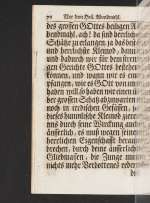 70 Vor dem Heil. Abendmahl.
des grossen GOttes heiligen A-
bendmahl, ach! da sind herrlich
Schätze zu erlangen, ja das
und herrlichste Kleinod,
und dadurch wir für dem
gen Gerichte GOttes
können, und wann wir es
pfangen, wie es GOtt von uns
haben will, so haben wir einen
der grossen Schatz ahzuwarten
noch in irrdischen Gefässen,
dieses himmlische Kleinod
uns durch seine Würckung auch
änsserlich, es muß wegen seiner
herrlichen Eigenschafft
brechen, durch deine äusserliche
Gliedmassen, die Zunge muß
nichts mehr Verbottenes reden